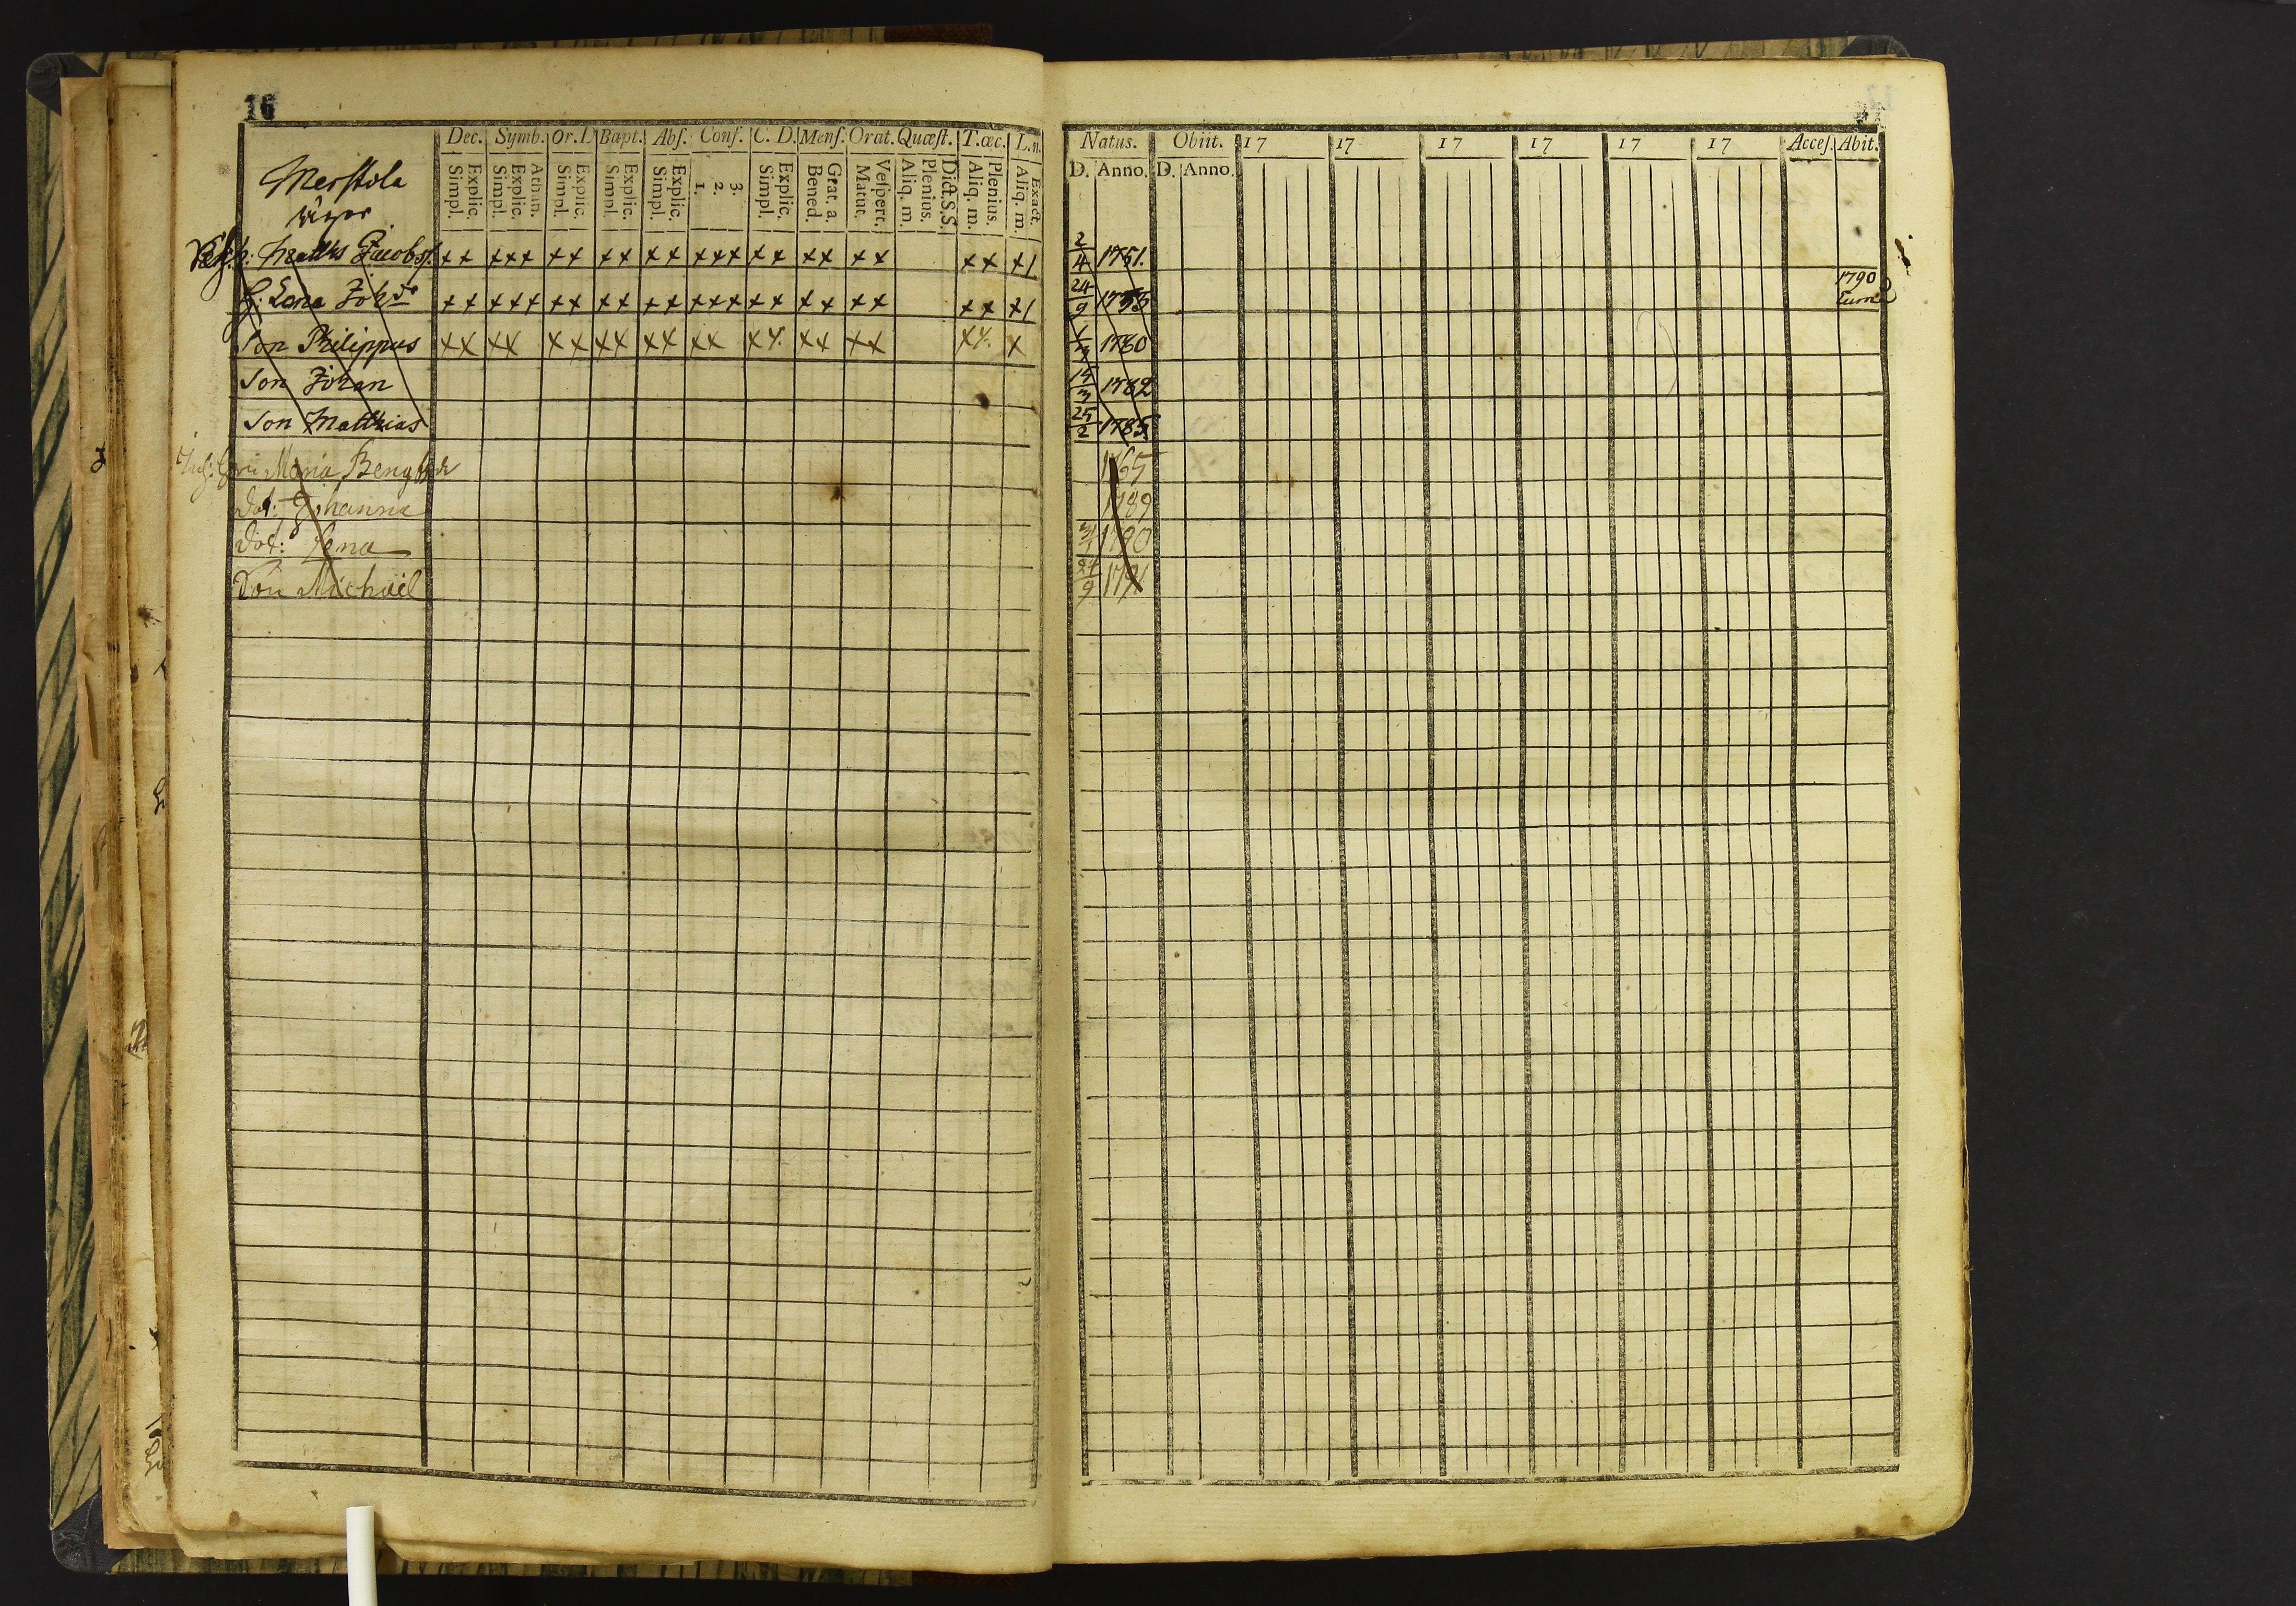 16
Dec. Symb. Or. D. Bapt. Abſ. Conf. C. D. Menſ. Orat. Quæſt. T. œc. L. n.
Explic. Simpl. Athan. Explic. Simpl. Explic. Simpl. Explic. Simpl. Explic. Simpl. 3. 2. 1. Explic. Simpl. Grat. a. Bened. Veſpert. Matut. Dict. S. S. Plenius. Aliq. m. Plenius. Aliq. m. Exact. Aliq. m.
Merstola
Matths Jacobss. ×× ××× ×× ×× ×× ××× ×× ×× ×× ×× ×
H: Lena Joh.dr ×× ××× ×× ×× ×× ××× ×× ×× ×× ×× ×
Son Philippus ×× ×× ×× ×× ×× ×× ×× ×× ×× ×× ×
Son Johan
Son Matthias
Maria Bengtsdr
Dot: Johanna
Dot: Lena
Son Michaël
Natus. Obiit. 17 17 17 17 17 17 Acceſ. Abit.
D. Anno. D. Anno.
2/4 1751.
24/9 1790
1780
15/3 1782
25/2 1785
1765
1789
1790
24/9 1791